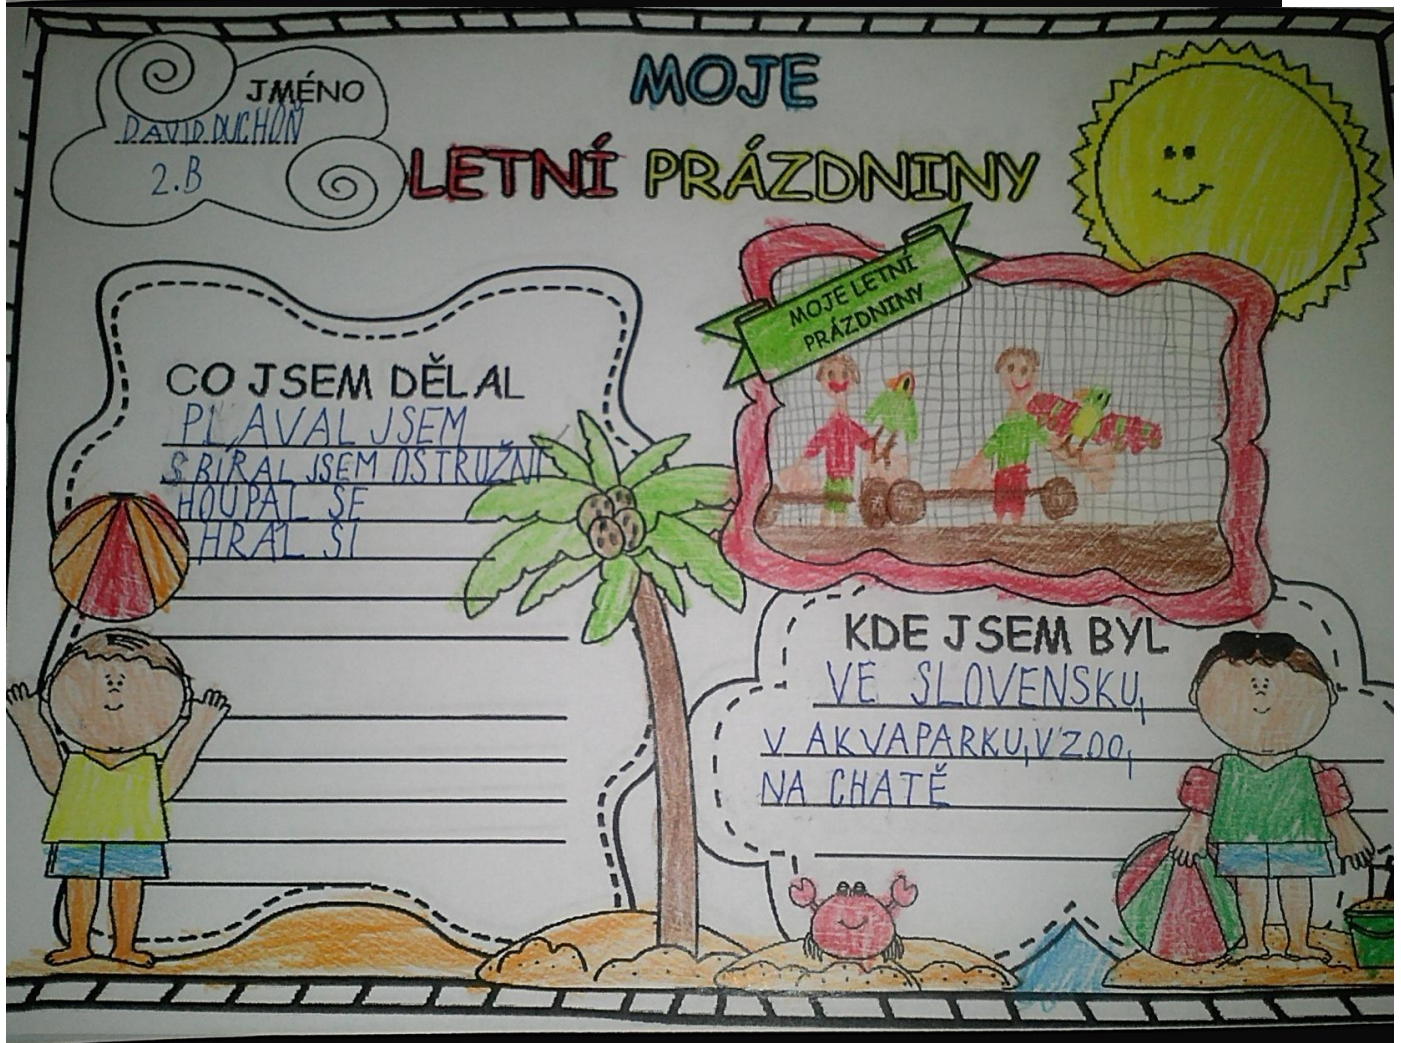 JMÉNO
DAVID DUCHOŇ
2.B
MOJE
LETNÍ PRÁZDNINY
MOJE LETNÍ
PRÁZDNINY
CO JSEM DĚLAL
PLAVAL JSEM
SBÍRAL JSEM OSTRUŽNI
HOUPAL SE
HRÁL SI
KDE JSEM BYL
VE SLOVENSKU,
V AKVAPARKU, V ZOO,
NA CHATĚ